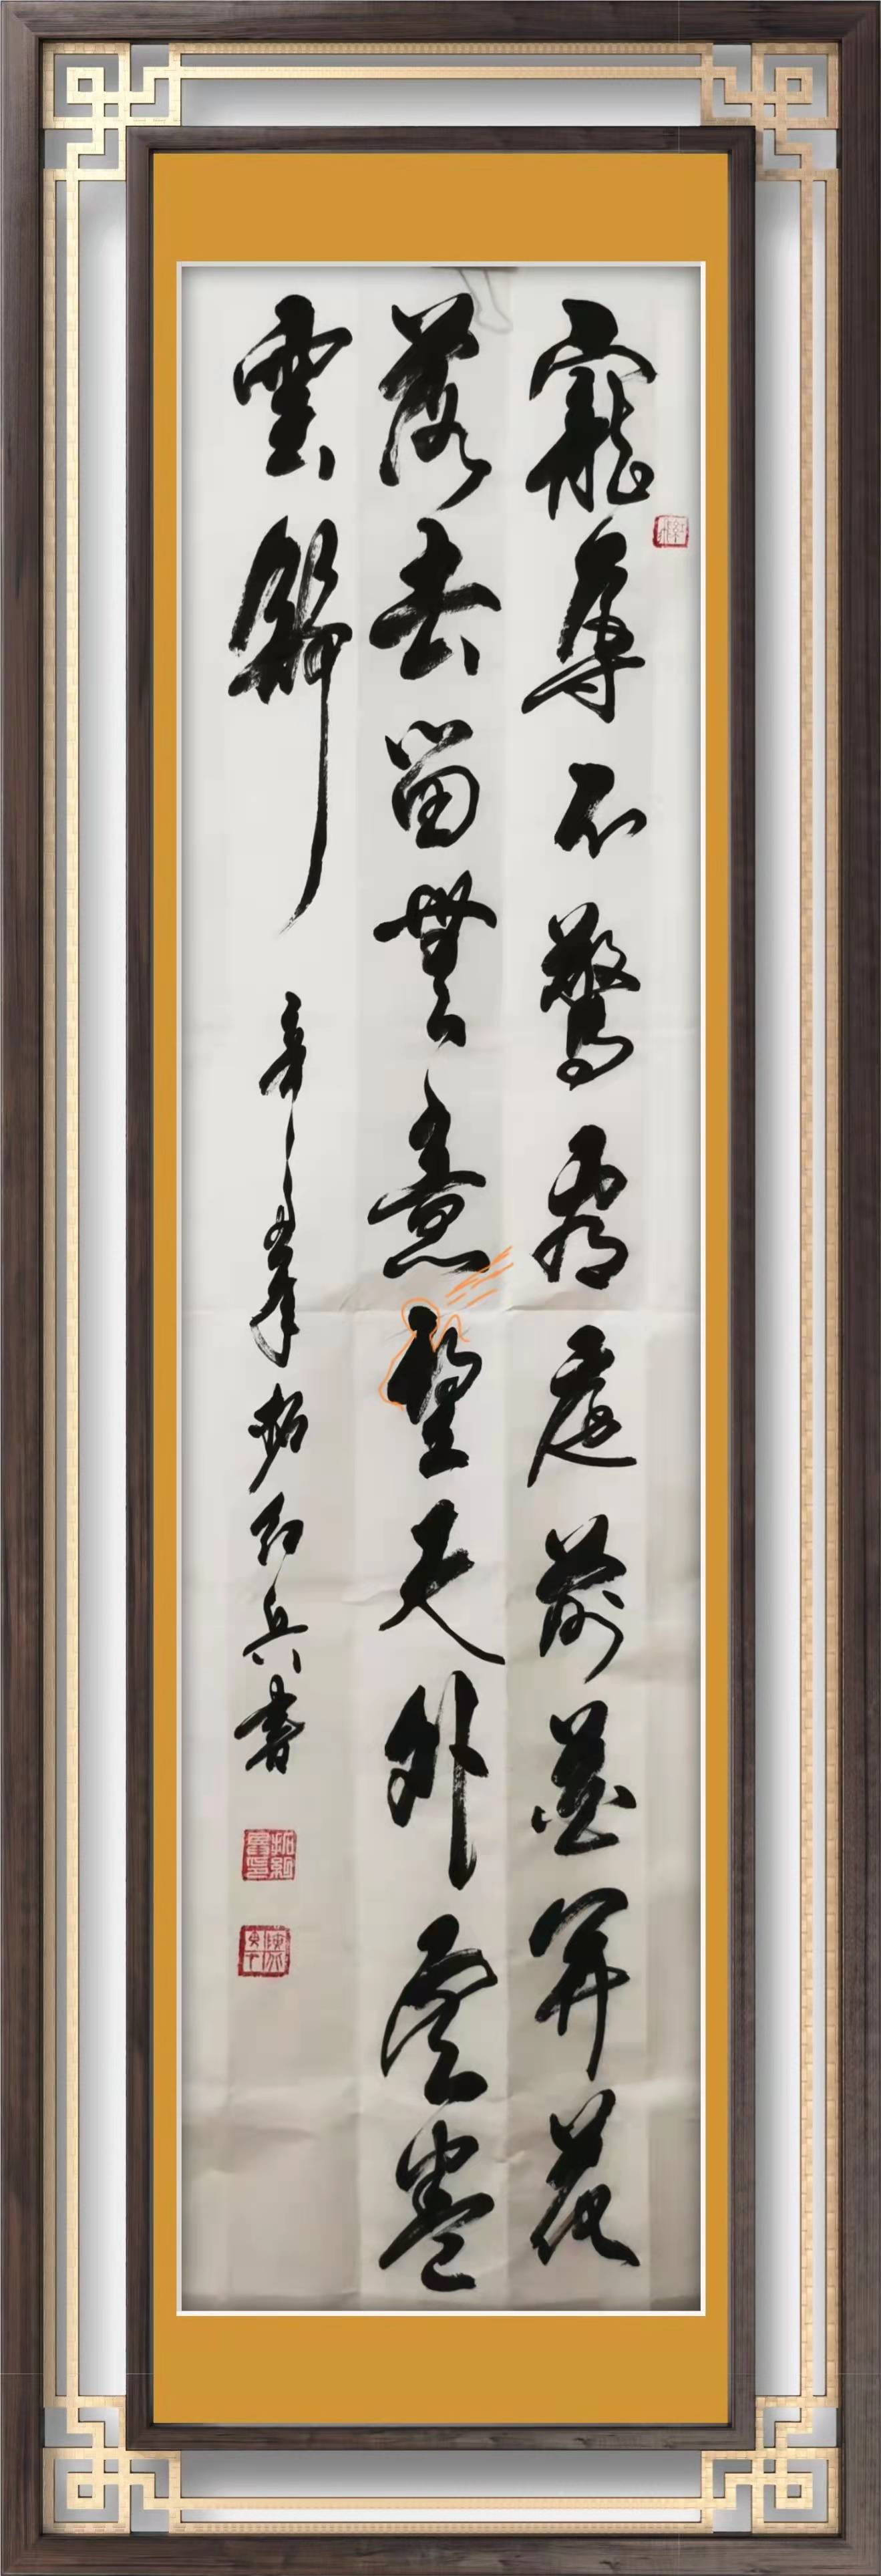 寵辱不驚看庭前花開花
落去留無意望天外雲卷
雲舒 辛丑年拓紅兵書